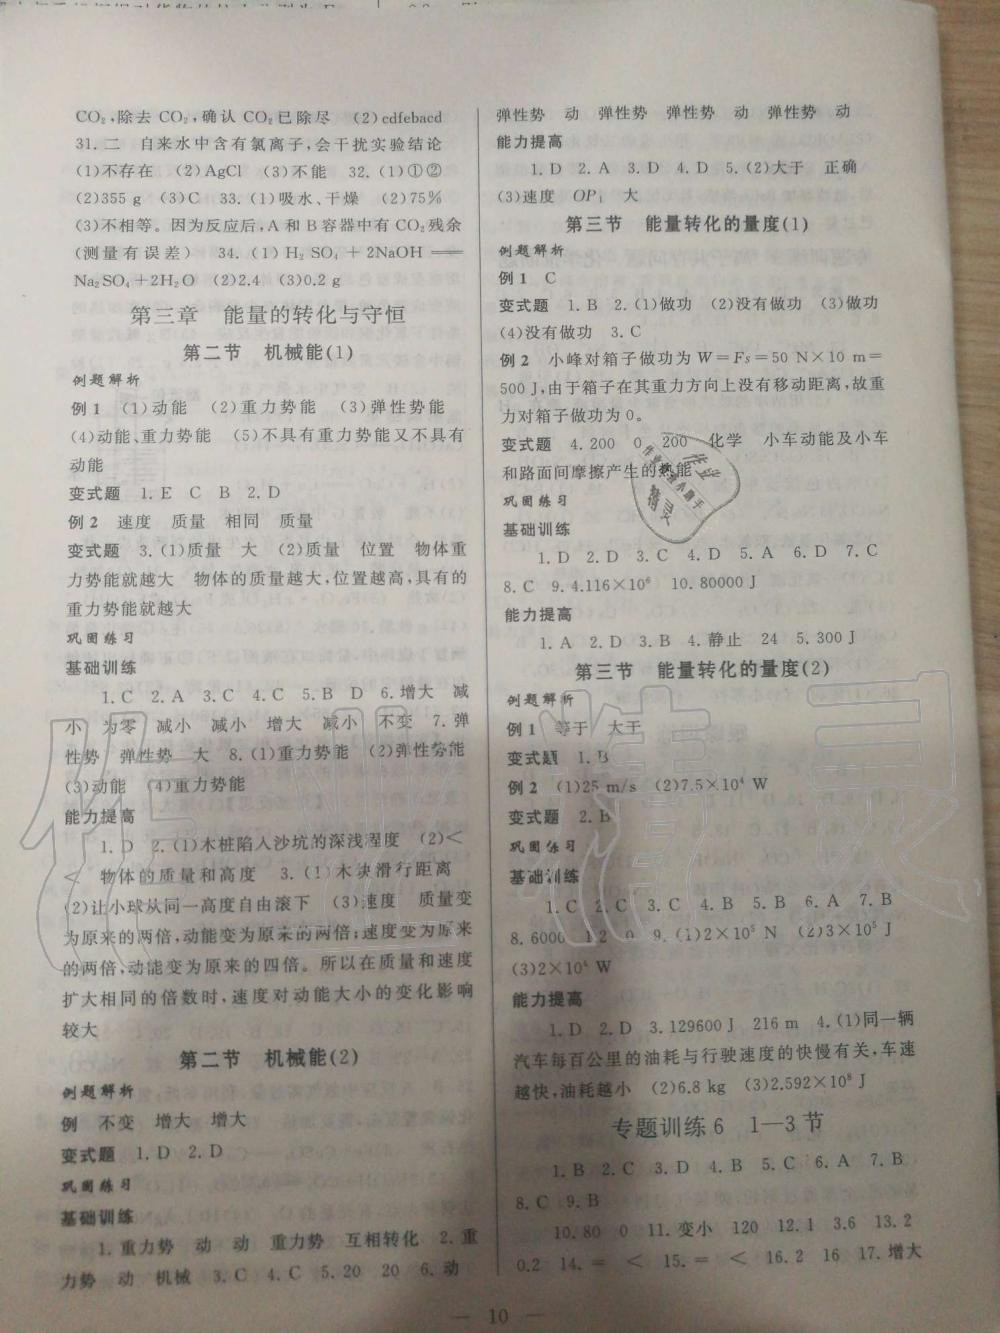 CO₂,除去CO₂,确认CO₂已除尽 (2)cdfebacd
31.二 自来水中含有氯离子,会干扰实验结论
(1)不存在 (2)AgCl (3)不能 32.(1)①②
(2)355 g (3)C 33.(1)吸水、干燥 (2)75%
(3)不相等。因为反应后,A和B容器中有CO₂残余
(测量有误差) 34.(1)H₂SO₄+2NaOH══
Na₂SO₄+2H₂O (2)2.4 (3)0.2 g
第三章 能量的转化与守恒
第二节 机械能(1)
例题解析
例1 (1)动能 (2)重力势能 (3)弹性势能
(4)动能、重力势能 (5)不具有重力势能又不具有
动能
变式题 1.E C B 2.D
例2 速度 质量 相同 质量
变式题 3.(1)质量 大 (2)质量 位置 物体重
力势能就越大 物体的质量越大,位置越高,具有的
重力势能就越大
巩固练习
基础训练
1.C 2.A 3.C 4.C 5.B D 6.增大 减
小 为零 减小 减小 增大 减小 不变 7.弹
性势 弹性势 大 8.(1)重力势能 (2)弹性势能
(3)动能 (4)重力势能
能力提高
1.D 2.(1)木桩陷入沙坑的深浅程度 (2)<
< 物体的质量和高度 3.(1)木块滑行距离
(2)让小球从同一高度自由滚下 (3)速度 质量变
为原来的两倍,动能变为原来的两倍;速度变为原来
的两倍,动能变为原来的四倍。所以在质量和速度
扩大相同的倍数时,速度对动能大小的变化影响
较大
第二节 机械能(2)
例题解析
例 不变 增大 增大
变式题 1.D 2.D
巩固练习
基础训练
1.重力势 动 动 重力势 互相转化 2.重
力势 动 机械 3.C 4.C 5.20 20 6.动
弹性势 动 弹性势 弹性势 动 弹性势 动
能力提高
1.D 2.A 3.D 4.D 5.(2)大于 正确
(3)速度 OP₁ 大
第三节 能量转化的量度(1)
例题解析
例1 C
变式题 1.B 2.(1)做功 (2)没有做功 (3)做功
(4)没有做功 3.C
例2 小峰对箱子做功为W=Fs=50 N×10 m=
500 J,由于箱子在其重力方向上没有移动距离,故重
力对箱子做功为0。
变式题 4.200 0 200 化学 小车动能及小车
和路面间摩擦产生的热能
巩固练习
基础训练
1.D 2.D 3.C 4.D 5.A 6.D 7.C
8.C 9.4.116×10⁶ 10.80000 J
能力提高
1.A 2.D 3.B 4.静止 24 5.300 J
第三节 能量转化的量度(2)
例题解析
例1 等于 大于
变式题 1.B
例2 (1)25 m/s (2)7.5×10⁴ W
变式题 2.B
巩固练习
基础训练
1.C 2.C 3.C 4.B 5.B 6.A 7.B
8.6000 1 2 0 9.(1)2×10⁵ N (2)3×10⁵ J
(3)2×10⁶ W
能力提高
1.D 2.D 3.129600 J 216 m 4.(1)同一辆
汽车每百公里的油耗与行驶速度的快慢有关,车速
越快,油耗越小 (2)6.8 kg (3)2.592×10⁸ J
专题训练6 1—3节
1.B 2.C 3.D 4.B 5.C 6.A 7.B
8.C 9.B
10.80 0 11.变小 120 12.1 3.6 13.2
0.2 14.= < 15.= < 16.2 16 17.增大
— 10 —
作业精灵